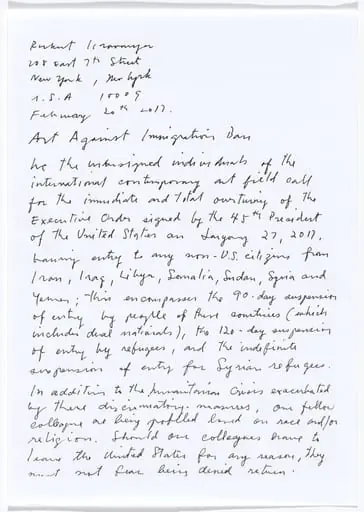 208 East 7th Street
New York, New York
U.S.A 10009
February 20th 2017.
Art Against Immigration Ban
We the undersigned individuals of the
international contemporary art field call
for the immediate and total overturning of the
Executive Order signed by the 45th President
of the United States on January 27, 2017,
banning entry to any non-U.S. citizens from
Iran, Iraq, Libya, Somalia, Sudan, Syria and
Yemen; this encompasses the 90-day suspension
of entry by people of these countries (which
includes dual nationals), the 120-day suspension
of entry by refugees, and the indefinite
suspension of entry for Syrian refugees.
In addition to the humanitarian crisis exacerbated
by these discriminatory measures, our fellow
colleagues are being profiled based on race and/or
religion. Should our colleagues have to
leave the United States for any reason, they
must not fear being denied return.